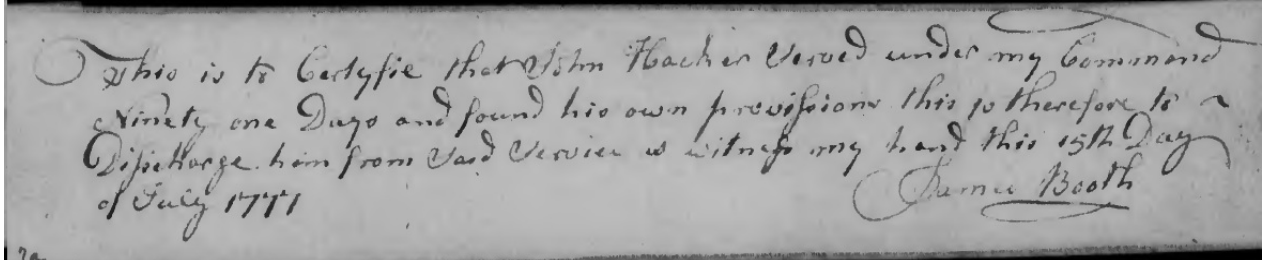 This is to Certyfie that John Hacker Served under my Command
Ninety one Days and found his own provisions this is therefore to
Discharge him from Said Service as witness my hand this 15th Day
of July 1777
James Booth